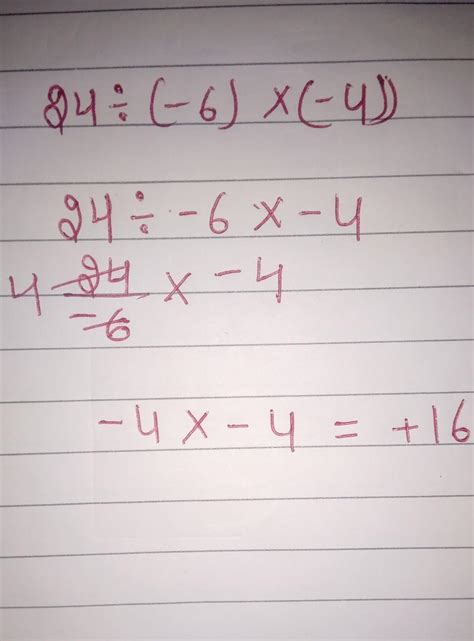 24 ÷ (-6) × (-4))
24 ÷ -6 × -4
4 24/-6 × -4
-4 × -4 = +16